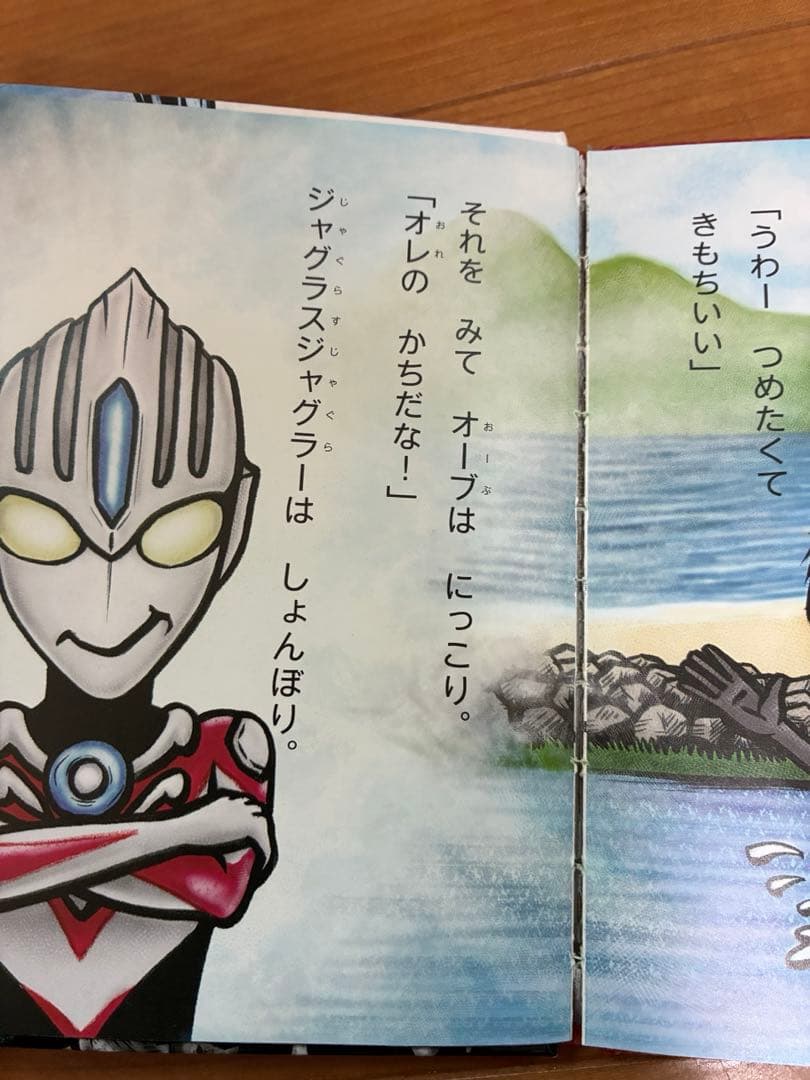 「うわー　つめたくて
きもちいい」
それを　みて　オーブは　にっこり。
「オレの　かちだな！」
ジャグラスジャグラーは　しょんぼり。